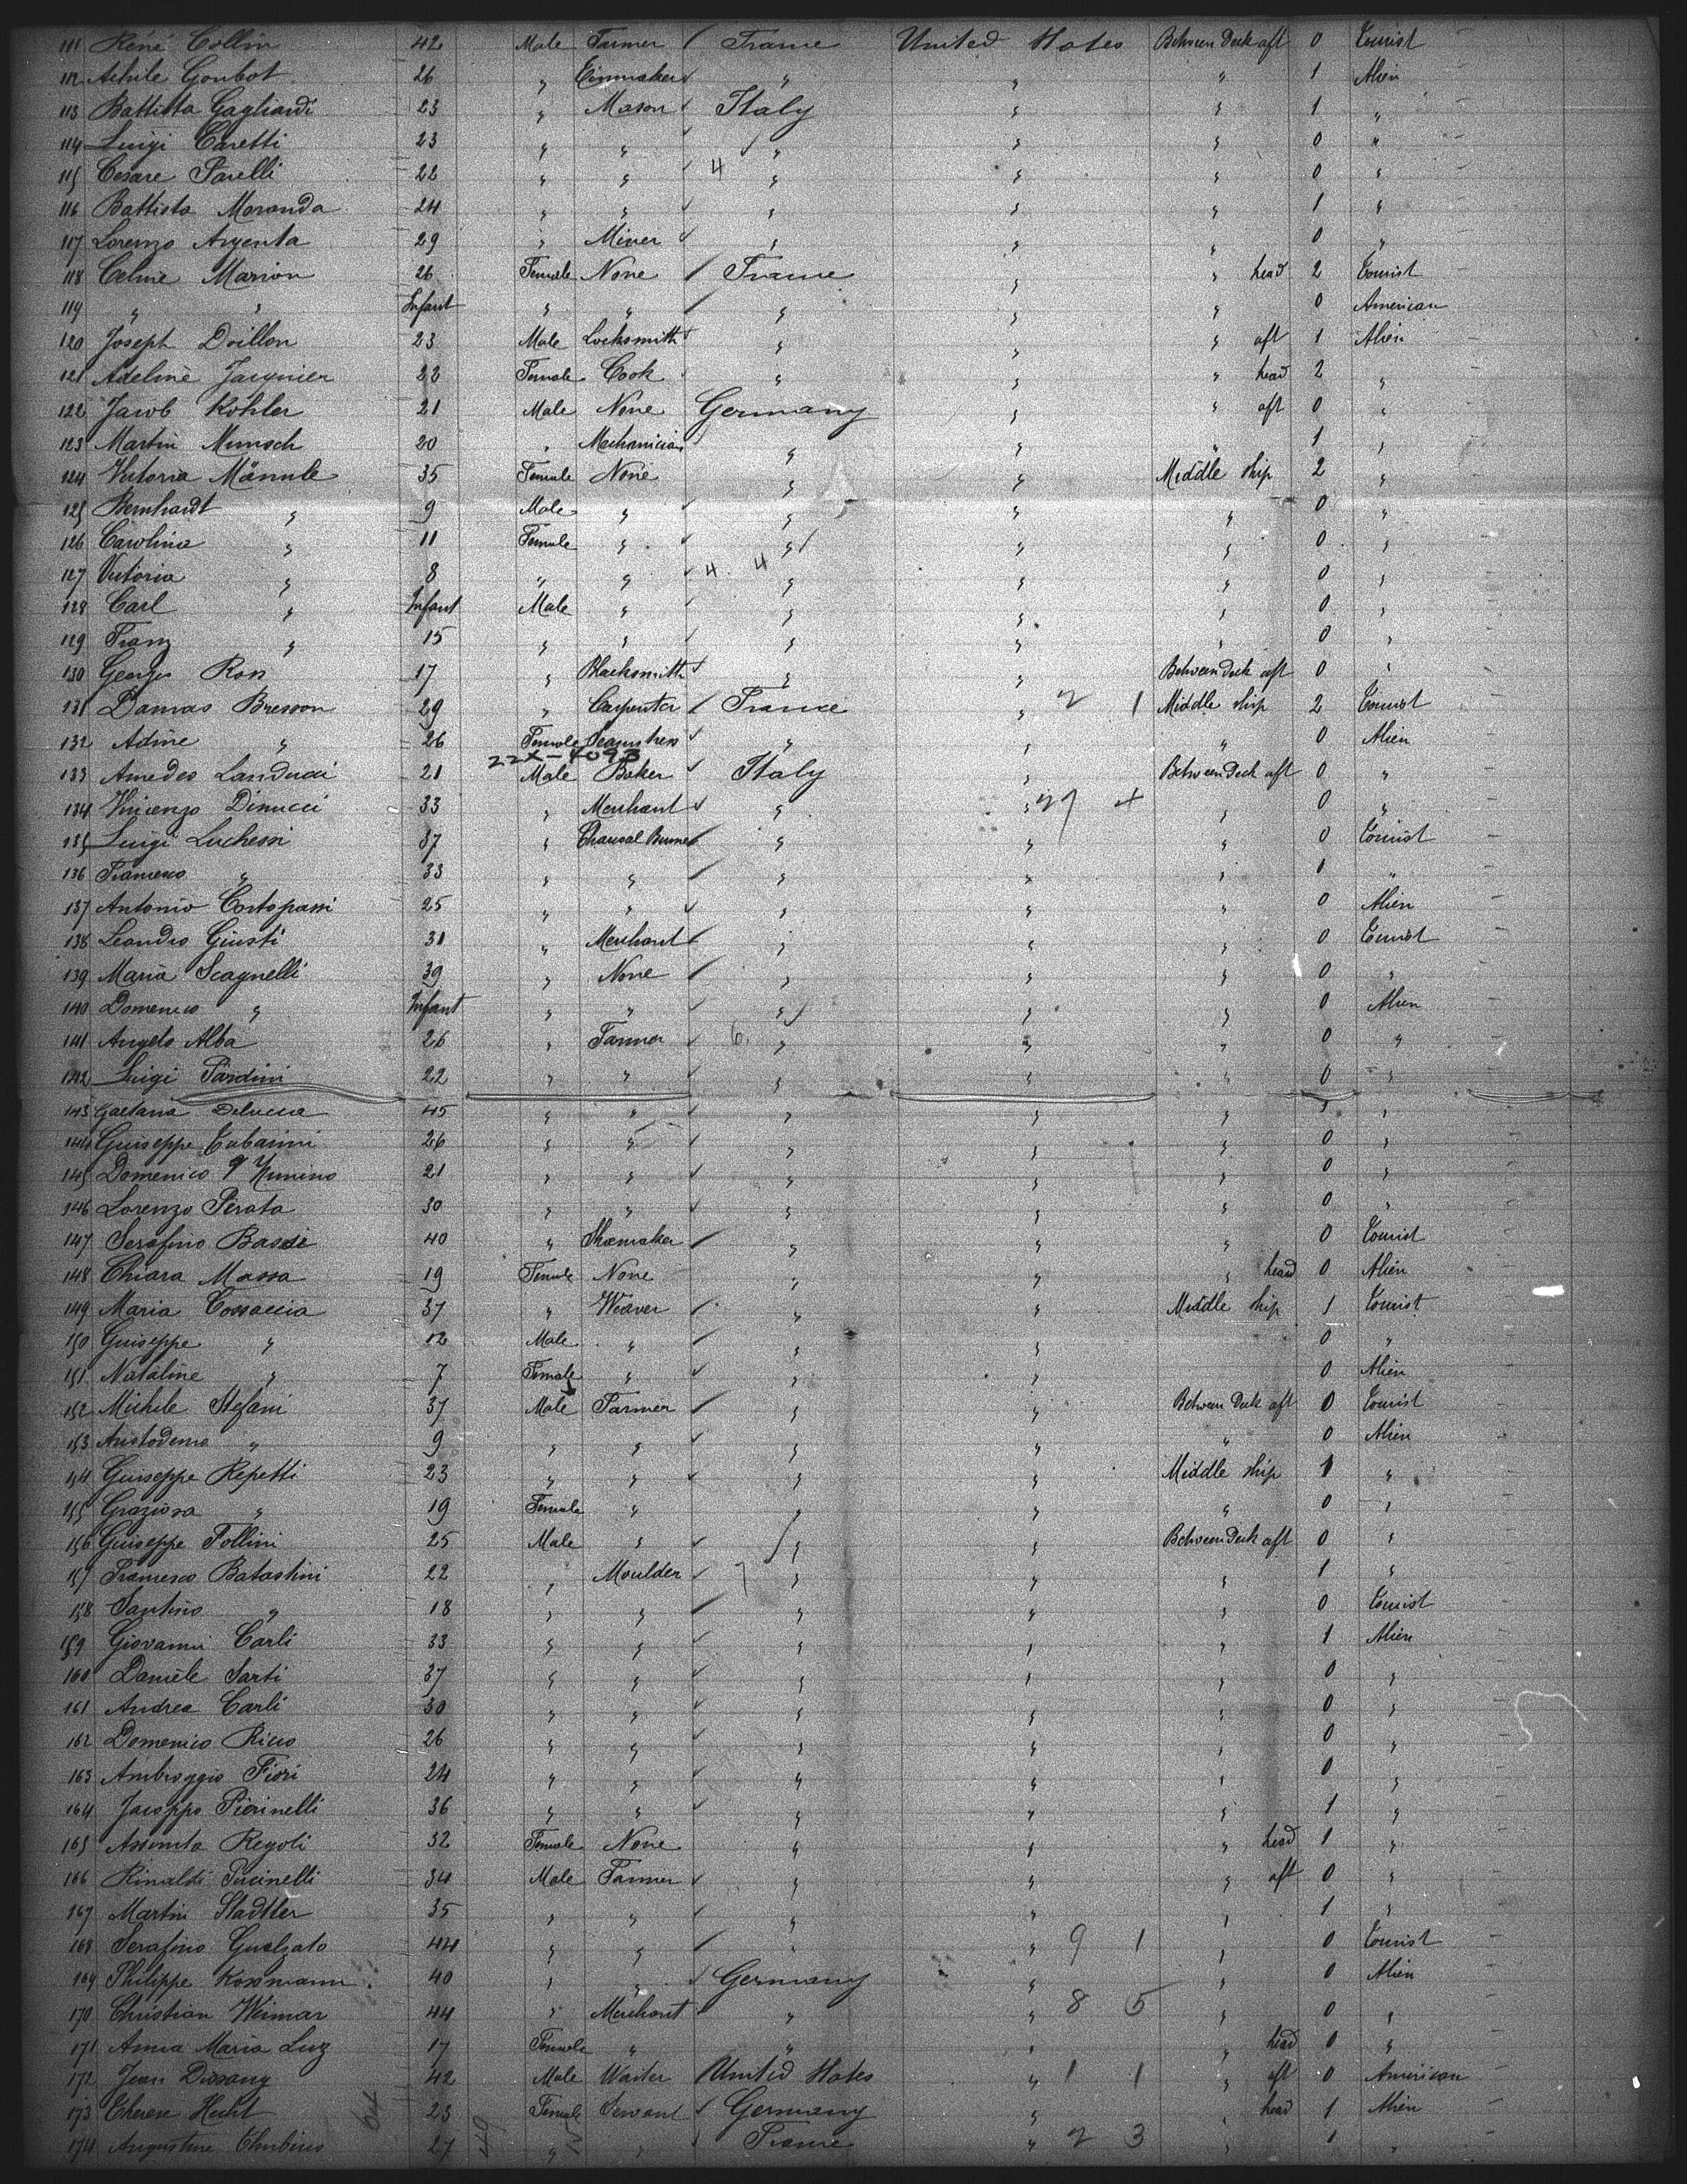 111 Réné Collin 42 Male Farmer / France United States Between Deck aft 0 Tourist
112 Achile Goubot 26 " " " " 1 Alien
113 Battista Gagliardi 23 " Mason Italy " " 1 "
114 Luigi Caretti 23 " " " " " 0 "
115 Cesare Parelli 22 " " 4 " " " 0 "
116 Battista Moranda 24 " " " " " 1 "
117 Lorenzo Argenta 29 " Miner " " " 0 "
118 Celine Marion 26 Female None / France " " head 2 Tourist
119 " " Infant " " " " " 0 American
120 Joseph Doillon 23 Male Locksmith " " " aft 1 Alien
121 Adeline Jacquier 22 Female Cook " " " head 2 "
122 Jacob Köhler 21 Male None Germany " " aft 0 "
123 Martin Munsch 20 " Mechanician " " " 1 "
124 Victoria Männle 35 Female None " " Middle ship 2 "
125 Bernhardt " 9 Male " " " " 0 "
126 Carolina " 11 Female " " " " 0 "
127 Victoria " 8 " " 4 4 " " " 0 "
128 Carl " Infant Male " " " " 0 "
129 Franz " 15 " " " " " 0 "
130 Georges Ross 17 " Blacksmith " " Between Deck aft 0 "
131 Damas Bresson 29 " Carpenter / France " 2 1 Middle ship 2 Tourist
132 Adine " 26 Female Seamstress " " " 0 Alien
22X-4093
133 Amedeo Landucci 21 Male Baker Italy " Between Deck aft 0 "
134 Vincenzo Dinucci 33 " Merchant " " 27 4 " 0 "
135 Luigi Luchessi 37 " " " " 0 Tourist
136 Francesco " 33 " " " " " 1 "
137 Antonio Cortopassi 25 " " " " " 0 Alien
138 Leandro Giusti 31 " Merchant " " " 0 Tourist
139 Maria Scagnelli 39 " None " " " 0 "
140 Domenico " Infant " " " " " 0 Alien
141 Angelo Alba 26 " Farmer 6 " " " 0 "
142 Luigi Pardini 22 " " " " " 0 "
143 Gaetana Delucca 45 " " " " " "
144 Guiseppe Tubarini 26 " " " " " 0 "
145 Domenico 21 " " " " " 0 "
146 Lorenzo Perata 30 " " " " " 0 "
147 Serafino Bassi 40 " Shoemaker " " " 0 Tourist
148 Chiara Massa 19 Female None " " " head 0 Alien
149 Maria Cossaccia 37 " Weaver " " Middle ship 1 Tourist
150 Guiseppe " 12 Male " " " 0 "
151 Nataline " 7 Female " " " 0 Alien
152 Michele Stefani 37 Male Farmer " " Between Deck aft 0 Tourist
153 Aristodemo " 9 " " " " " 0 Alien
154 Guiseppe Repetti 23 " " " " Middle ship 1 "
155 Graziosa " 19 Female " " " " 0 "
156 Guiseppe Follini 25 Male " " " Between Deck aft 0 "
157 Francesco Batastini 22 " Moulder 7 " " " 1 "
158 Santino " 18 " " " " " 0 Tourist
159 Giovanni Carli 33 " " " " " 1 Alien
160 Daniele Sarti 37 " " " " " 0 "
161 Andrea Carli 30 " " " " " 0 "
162 Domenico Ricco 26 " " " " " 0 "
163 Ambroggio Fiori 24 " " " " " 0 "
164 Jacoppo Pierinelli 36 " " " " " 1 "
165 Assunta Regoli 32 Female None " " " head 1 "
166 Rinaldi Pucinelli 34 Male Farmer " " " aft 0 "
167 Martin Stadtler 35 " " " " " 1 "
168 Serafino Gualzato 44 " " " " 9 1 " 0 Tourist
169 Philippe Kossmann 40 " " Germany " " 0 Alien
170 Christian Weimar 44 " Merchant " " 8 5 " 0 "
171 Anna Maria Luz 17 Female " " " " head 0 "
172 Jean Dissang 42 Male Waiter United States " 1 1 " aft 0 American
173 Therese Hecht 23 Female Servant Germany " " head 1 Alien
174 Augustine 27 " " France " 2 3 " 1 "
64 49